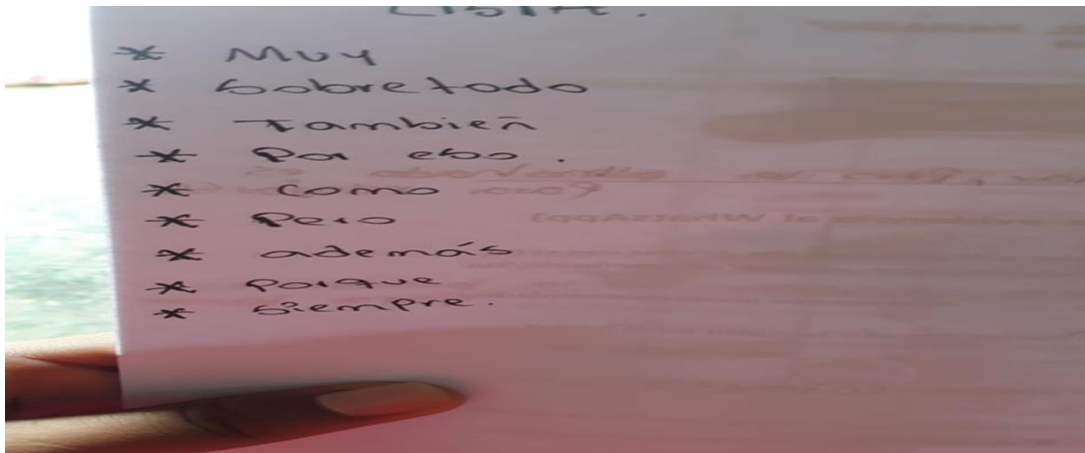 LISTA.
* Muy
* Sobretodo
* También
* Por eso.
* Como
* Pero
* además
* Porque
* Siempre.